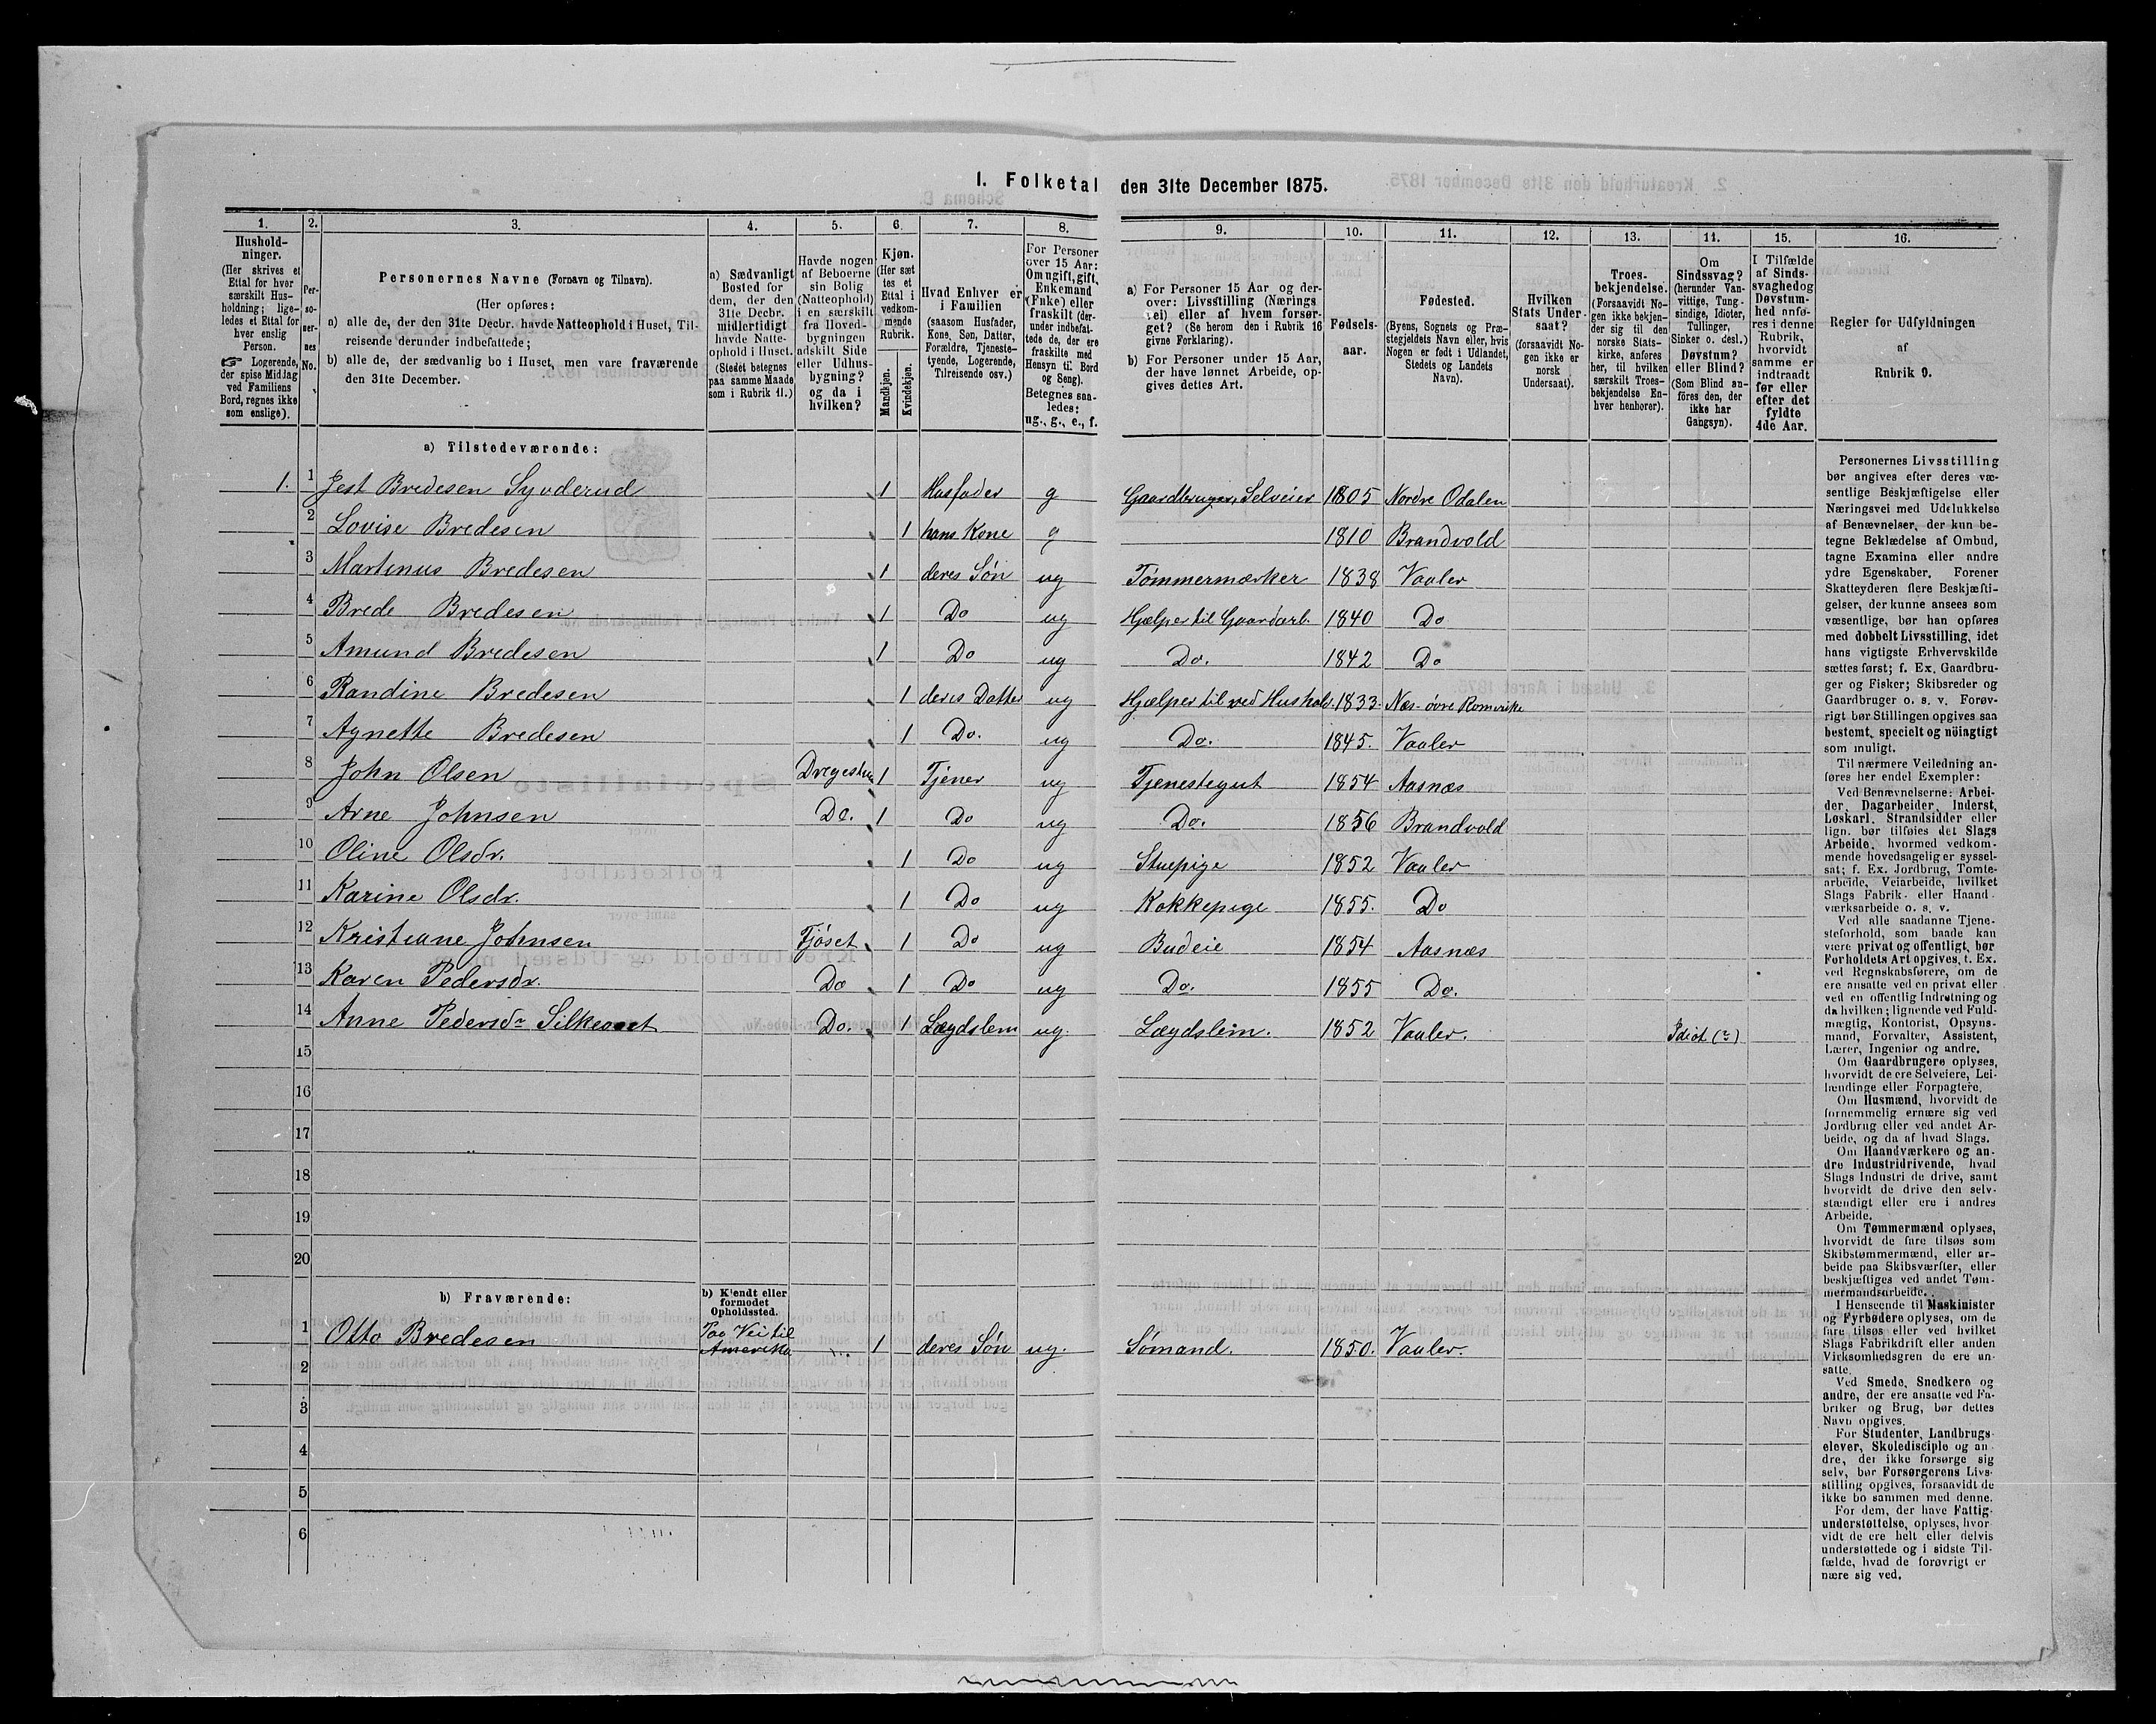 1. Folketal den 31te December 1875.
1.
Husholdninger.
(Her skrives et Ettal for hver særskilt Husholdning; ligeledes et Ettal for hver enslig Person.
☞ Logerende, der spise Middag ved Familiens Bord, regnes ikke som enslige).
2.
Personernes No.
3.
Personernes Navne (Fornavn og Tilnavn).
(Her opføres:
a) alle de, der den 31te Decbr. havde Natteophold i Huset, Tilreisende derunder indbefattede;
b) alle de, der sædvanlig bo i Huset, men vare fraværende den 31te December.
4.
a) Sædvanligt Bosted for dem, der den 31te Decbr. midlertidigt havde Natteophold i Huset. (Stedet betegnes paa samme Maade som i Rubrik 11.)
5.
Havde nogen af Beboerne sin Bolig (Natteophold) i en særskilt fra Hovedbygningen adskilt Side eller Udhusbygning? og da i hvilken?
6.
Kjøn.
(Her sættes et Ettal i vedkommende Rubrik.
Mandkjøn.
Kvindekjøn.
7.
Hvad Enhver er i Familien
(saasom Husfader, Kone, Søn, Datter, Forældre, Tjenestetyende, Logerende, Tilreisende osv.)
8.
For Personer over 15 Aar: Om ugift, gift, Enkemand (Enke) eller fraskilt (derunder indbefattede de, der ere fraskilte med Hensyn til Bord og Seng). Betegnes saaledes: ug., g., e., f.
9.
a) For Personer 15 Aar og derover: Livsstilling (Næringsvei) eller af hvem forsørget? (Se herom den i Rubrik 16 givne Forklaring).
b) For Personer under 15 Aar, der have lønnet Arbeide, opgives dettes Art.
10.
Fødselsaar.
11.
Fødested.
(Byens, Sognets og Præstegjeldets Navn eller, hvis Nogen er født i Udlandet, Stedets og Landets Navn).
12.
Hvilken Stats Undersaat?
(forsaavidt Nogen ikke er norsk Undersaat).
13.
Troesbekjendelse.
(Forsaavidt Nogen ikke bekjender sig til den norske Statskirke, anføres her, til hvilken særskilt Troesbekjendelse Enhver henhorer).
14.
Om Sindssvag? (herunder Vanvittige, Tungsindige, Idioter, Tullinger, Sinker o. desl.)
Døvstum? eller Blind?
(Som Blind anføres den, der ikke har Gangsyn).
15.
I Tilfælde af Sindssvaghed og Døvstumhed anføres i denne Rubrik, hvorvidt samme er indtraadt før eller efter det fyldte 4de Aar.
16.
Regler for Udfyldningen
af
Rubrik 9.
a) Tilstedeværende:
1. 1 Jest Bredesen Syvderud 1 Husfader g Gaardbruger, Selveier 1805 Nordre Odalen
2 Lovise Bredesen 1 hans Kone g 1810 Brandvold
3 Martinus Bredesen 1 deres Søn ug Tømmermærker 1838 Vaaler
4 Brede Bredesen 1 Do ug Hjælper til Gaardarb. 1840 Do
5 Amund Bredesen 1 Do ug Do. 1842 Do
6 Randine Bredesen 1 deres Datter ug Hjælper til ved Hushold. 1833 Næs øvre Romerike
7 Agnette Bredesen 1 Do. ug Do. 1845. Vaaler
8 John Olsen 1 Tjener ug Tjenestegut 1854 Aasnæs
9 Arne Johnsen Do. 1 Do ug Do. 1856 Brandvold
10 Oline Olsdr. 1 Do ug Stuepige 1852 Vaaler
11 Karine Olsdr. 1 Do ug Kokkepige 1855. Do
12 Kristiane Johnsen Fjøset 1 Do ug Budeie 1854 Aasnæs
13 Karen Pedersdr. Do 1 Do ug Do. 1855 Do.
14 Anne Pedersdr Do. 1 Lægdslem ug. Lægdslem. 1852 Vaaler. Idiot
15
16
17
18
19
20
b) Fraværende:
b) Kjendt eller formodet Opholdssted.
1 Otto Bredesen Paa Vei til Amerika 1 deres Søn ug. Sømand. 1850. Vaaler.
2
3
4
5
6
Personernes Livsstilling
bør angives efter deres væsentlige
Beskjæftigelse eller
Næringsvei med Udelukkelse
af Benævnelser, der kun betegne
Beklædelse af Ombud,
tagne Examina eller andre
ydre Egenskaber. Forener
Skatteyderen flere Beskjæftigelser,
der kunne ansees som
væsentlige, bør han opføres
med dobbelt Livsstilling, idet
hans vigtigste Erhvervskilde
sættes først; f. Ex. Gaardbruger
og Fisker; Skibsreder og
Gaardbruger o. s. v. Forøvrigt
bør Stillingen opgives saa
bestemt, specielt og nöiagtigt
som muligt.
Til nærmere Veiledning anføres
her endel Exempler:
Ved Benævnelserne: Arbeider,
Dagarbeider, Inderst,
Løskarl, Strandsidder eller
lign. bør tilføies det Slags
Arbeide, hvormed vedkommende
hovedsagelig er sysselsat;
f. Ex. Jordbrug, Tomtearbeide,
Veiarbeide, hvilket
Slags Fabrik- eller Haandværksarbeide
o. s. v.
Ved alle saadanne Tjenesteforhold,
som baade kan
være privat og offentligt, bør
Forholdets Art opgives, t. Ex.
ved Regnskabsførere, om de
ere ansatte ved en privat eller
ved en offentlig Indretning og
da hvilken; lignende ved Fuldmægtig,
Kontorist, Opsynsmand,
Forvalter, Assistent,
Lærer, Ingeniør og andre.
Om Gaardbrugere oplyses,
hvorvidt de ere Selveiere, Leilændinge
eller Forpagtere.
Om Husmænd, hvorvidt de
fornemmelig ernære sig ved
Jordbrug eller ved andet Arbeide,
og da af hvad Slags.
Om Haandværkere og andre
Industridrivende, hvad
Slags Industri de drive, samt
hvorvidt de drive den selvstændigt
eller ere i andres
Arbeide.
Om Tømmermænd oplyses,
hvorvidt de fare tilsøs som
Skibstømmermænd, eller arbeide
paa Skibsværfter, eller
beskjæftiges ved andet Tømmermandsarbeide.
I Henseende til Maskinister
og Fyrbødere oplyses, om de
fare tilsøs eller ved hvilket
Slags Fabrikdrift eller anden
Virksomhedsgren de ere ansatte.
Ved Smede, Snedkere og
andre, der ere ansatte ved Fabriker
og Brug, bør dettes
Navn opgives.
For Studenter, Landbrugselever,
Skoledisciple og andre,
der ikke forsørge sig
selv, bør Forsørgerens Livsstilling
opgives, forsaavidt de
ikke bo sammen med denne.
For dem, der have Fattigunderstøttelse,
oplyses, hvorvidt
de ere helt eller delvis
understøttede og i sidste Tilfælde,
hvad de forøvrigt ernære
sig ved.